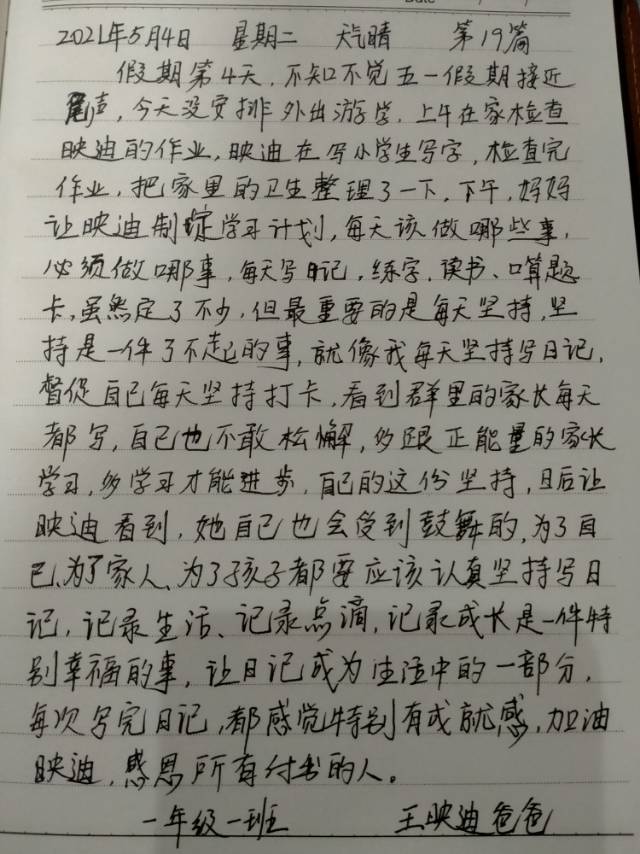 Date
2021年5月4日 星期二 天气晴 第19篇
假期第4天，不知不觉五一假期接近
尾声，今天没安排外出游学，上午在家检查
映迪的作业，映迪在写小学生写字，检查完
作业，把家里的卫生整理了一下，下午，妈妈
让映迪制定学习计划，每天该做哪些事，
必须做哪事，每天写日记，练字、读书、口算题
卡，虽然定了不少，但最重要的是每天坚持，坚
持是一件了不起的事，就像我每天坚持写日记，
督促自己每天坚持打卡，看到群里的家长每天
都写，自己也不敢松懈，多跟正能量的家长
学习，多学习才能进步，自己的这份坚持，日后让
映迪看到，她自己也会受到鼓舞的，为了自
己、为了家人、为了孩子都要应该认真坚持写日
记，记录生活、记录点滴，记录成长是一件特
别幸福的事，让日记成为生活中的一部分，
每次写完日记，都感觉特别有成就感，加油
映迪，感恩所有付出的人。
一年级一班 王映迪爸爸